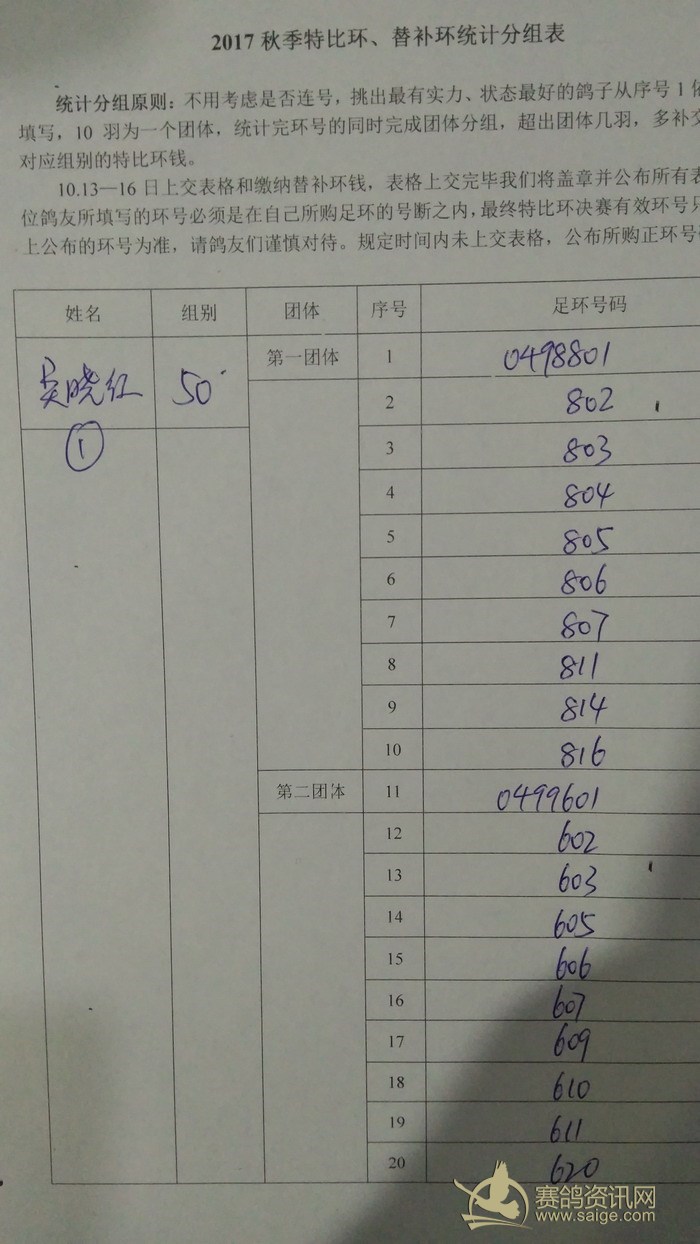 2017 秋季特比环、替补环统计分组表
统计分组原则：不用考虑是否连号，挑出最有实力、状态最好的鸽子从序号 1 依
填写，10 羽为一个团体，统计完环号的同时完成团体分组，超出团体几羽，多补交
对应组别的特比环钱。
10.13—16 日上交表格和缴纳替补环钱，表格上交完毕我们将盖章并公布所有表
位鸽友所填写的环号必须是在自己所购足环的号断之内，最终特比环决赛有效环号只
上公布的环号为准，请鸽友们谨慎对待。规定时间内未上交表格，公布所购正环号
姓名 组别 团体 序号 足环号码
吴晓红 50 第一团体 1 0498801
① 2 802
3 803
4 804
5 805
6 806
7 807
8 811
9 814
10 816
第二团体 11 0499601
12 602
13 603
14 605
15 606
16 607
17 609
18 610
19 611
20 620
赛鸽资讯网
www.saige.com